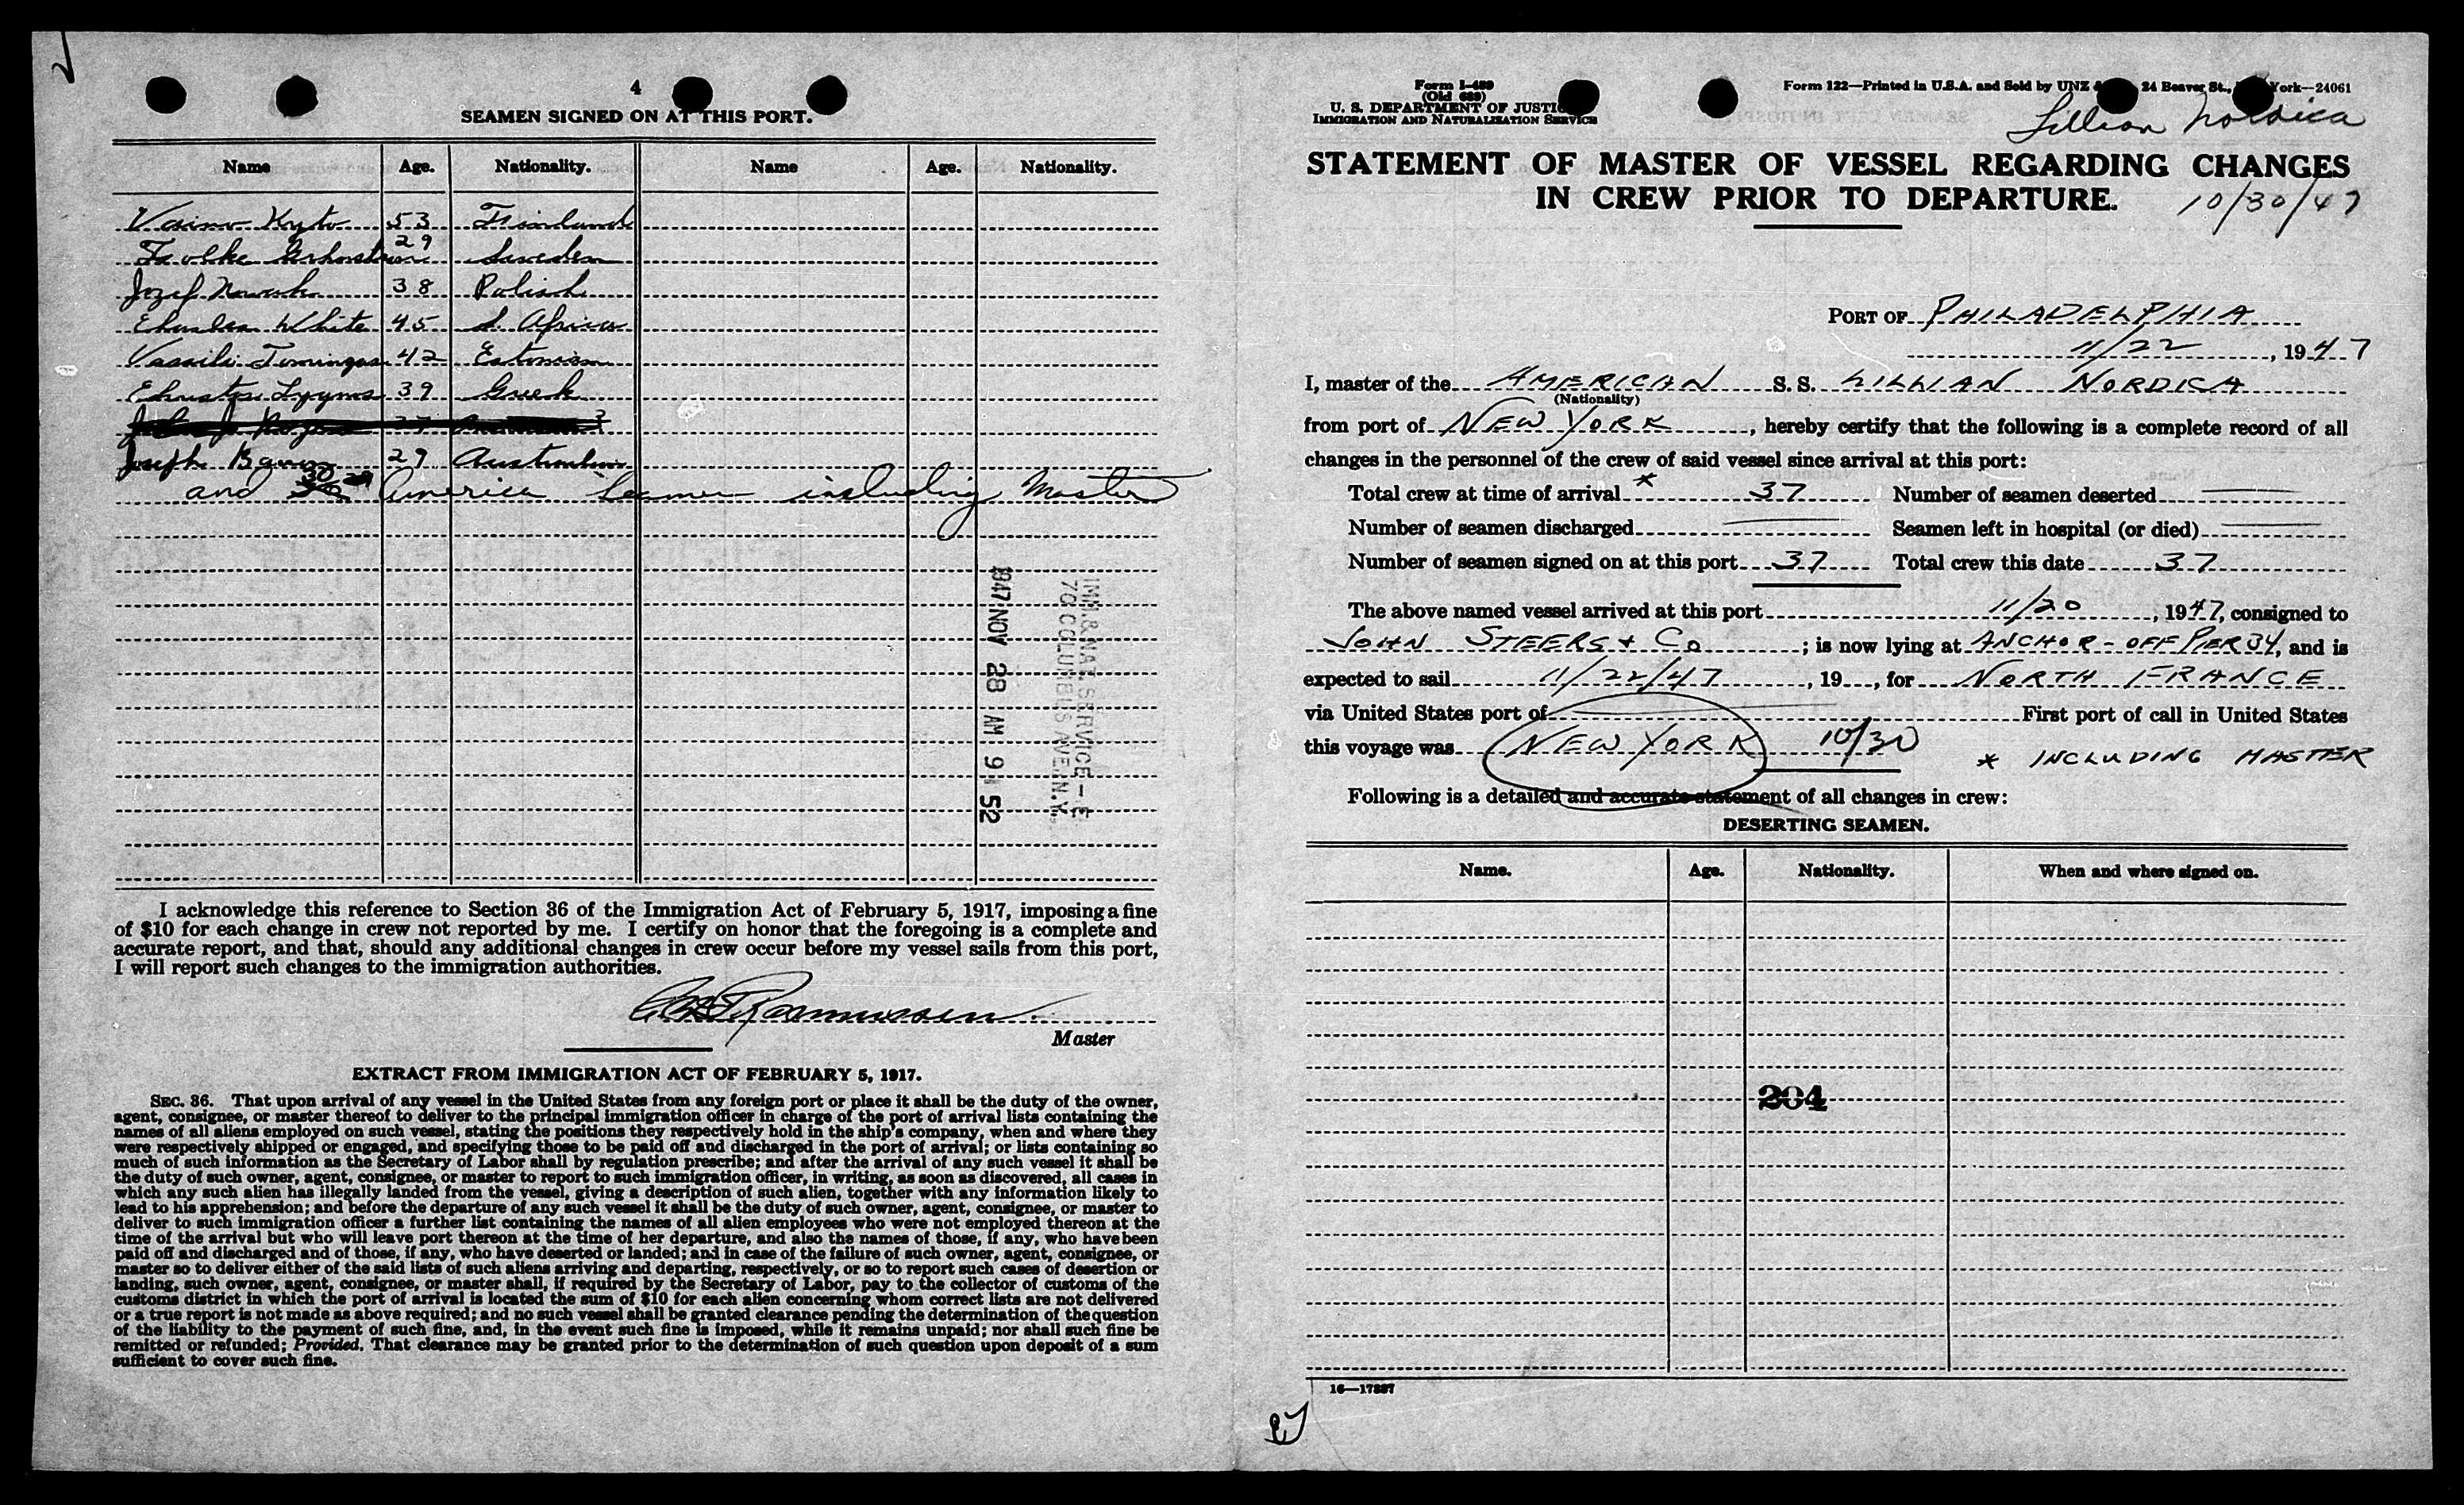 4
SEAMEN SIGNED ON AT THIS PORT.
Name Age. Nationality. Name Age. Nationality.
Vaino Kyto 53 Finland
Folke 29 Sweden
Jozef Nowak 38 Polish
Charles White 45 S. Africa
Vassili Tomingas 42 Estonian
39 Greek
Joseph 29 Australian
and 30 America Seamen including Master
IMM. & NAT. SERVICE — E
70 COLUMBUS AVE. N.Y.
1947 NOV 28 AM 9 52
I acknowledge this reference to Section 36 of the Immigration Act of February 5, 1917, imposing a fine
of $10 for each change in crew not reported by me. I certify on honor that the foregoing is a complete and
accurate report, and that, should any additional changes in crew occur before my vessel sails from this port,
I will report such changes to the immigration authorities.
Rasmussen
Master
EXTRACT FROM IMMIGRATION ACT OF FEBRUARY 5, 1917.
SEC. 36. That upon arrival of any vessel in the United States from any foreign port or place it shall be the duty of the owner,
agent, consignee, or master thereof to deliver to the principal immigration officer in charge of the port of arrival lists containing the
names of all aliens employed on such vessel, stating the positions they respectively hold in the ship's company, when and where they
were respectively shipped or engaged, and specifying those to be paid off and discharged in the port of arrival; or lists containing so
much of such information as the Secretary of Labor shall by regulation prescribe; and after the arrival of any such vessel it shall be
the duty of such owner, agent, consignee, or master to report to such immigration officer, in writing, as soon as discovered, all cases in
which any such alien has illegally landed from the vessel, giving a description of such alien, together with any information likely to
lead to his apprehension; and before the departure of any such vessel it shall be the duty of such owner, agent, consignee, or master to
deliver to such immigration officer a further list containing the names of all alien employees who were not employed thereon at the
time of the arrival but who will leave port thereon at the time of her departure, and also the names of those, if any, who have been
paid off and discharged and of those, if any, who have deserted or landed; and in case of the failure of such owner, agent, consignee, or
master so to deliver either of the said lists of such aliens arriving and departing, respectively, or so to report such cases of desertion or
landing, such owner, agent, consignee, or master shall, if required by the Secretary of Labor, pay to the collector of customs of the
customs district in which the port of arrival is located the sum of $10 for each alien concerning whom correct lists are not delivered
or a true report is not made as above required; and no such vessel shall be granted clearance pending the determination of the question
of the liability to the payment of such fine, and, in the event such fine is imposed, while it remains unpaid; nor shall such fine be
remitted or refunded; Provided, That clearance may be granted prior to the determination of such question upon deposit of a sum
sufficient to cover such fine.
Form I-489
(Old 689)
U. S. DEPARTMENT OF JUSTICE
IMMIGRATION AND NATURALIZATION SERVICE
Form 122—Printed in U.S.A. and Sold by UNZ & 24 Beaver St., York—24061
Lillian Nordica
STATEMENT OF MASTER OF VESSEL REGARDING CHANGES
IN CREW PRIOR TO DEPARTURE.
10/30/47
PORT OF PHILADELPHIA
11/22, 1947
I, master of the AMERICAN S. S. LILLIAN NORDICA
(Nationality)
from port of NEW YORK, hereby certify that the following is a complete record of all
changes in the personnel of the crew of said vessel since arrival at this port:
Total crew at time of arrival * 37 Number of seamen deserted —
Number of seamen discharged — Seamen left in hospital (or died) —
Number of seamen signed on at this port 37 Total crew this date 37
The above named vessel arrived at this port 11/20, 1947, consigned to
JOHN STEERS & CO; is now lying at ANCHOR - OFF PIER 34, and is
expected to sail 11/22/47, 19, for NORTH FRANCE
via United States port of — First port of call in United States
this voyage was NEW YORK 10/30
* INCLUDING MASTER
Following is a detailed and accurate statement of all changes in crew:
DESERTING SEAMEN.
Name. Age. Nationality. When and where signed on.
204